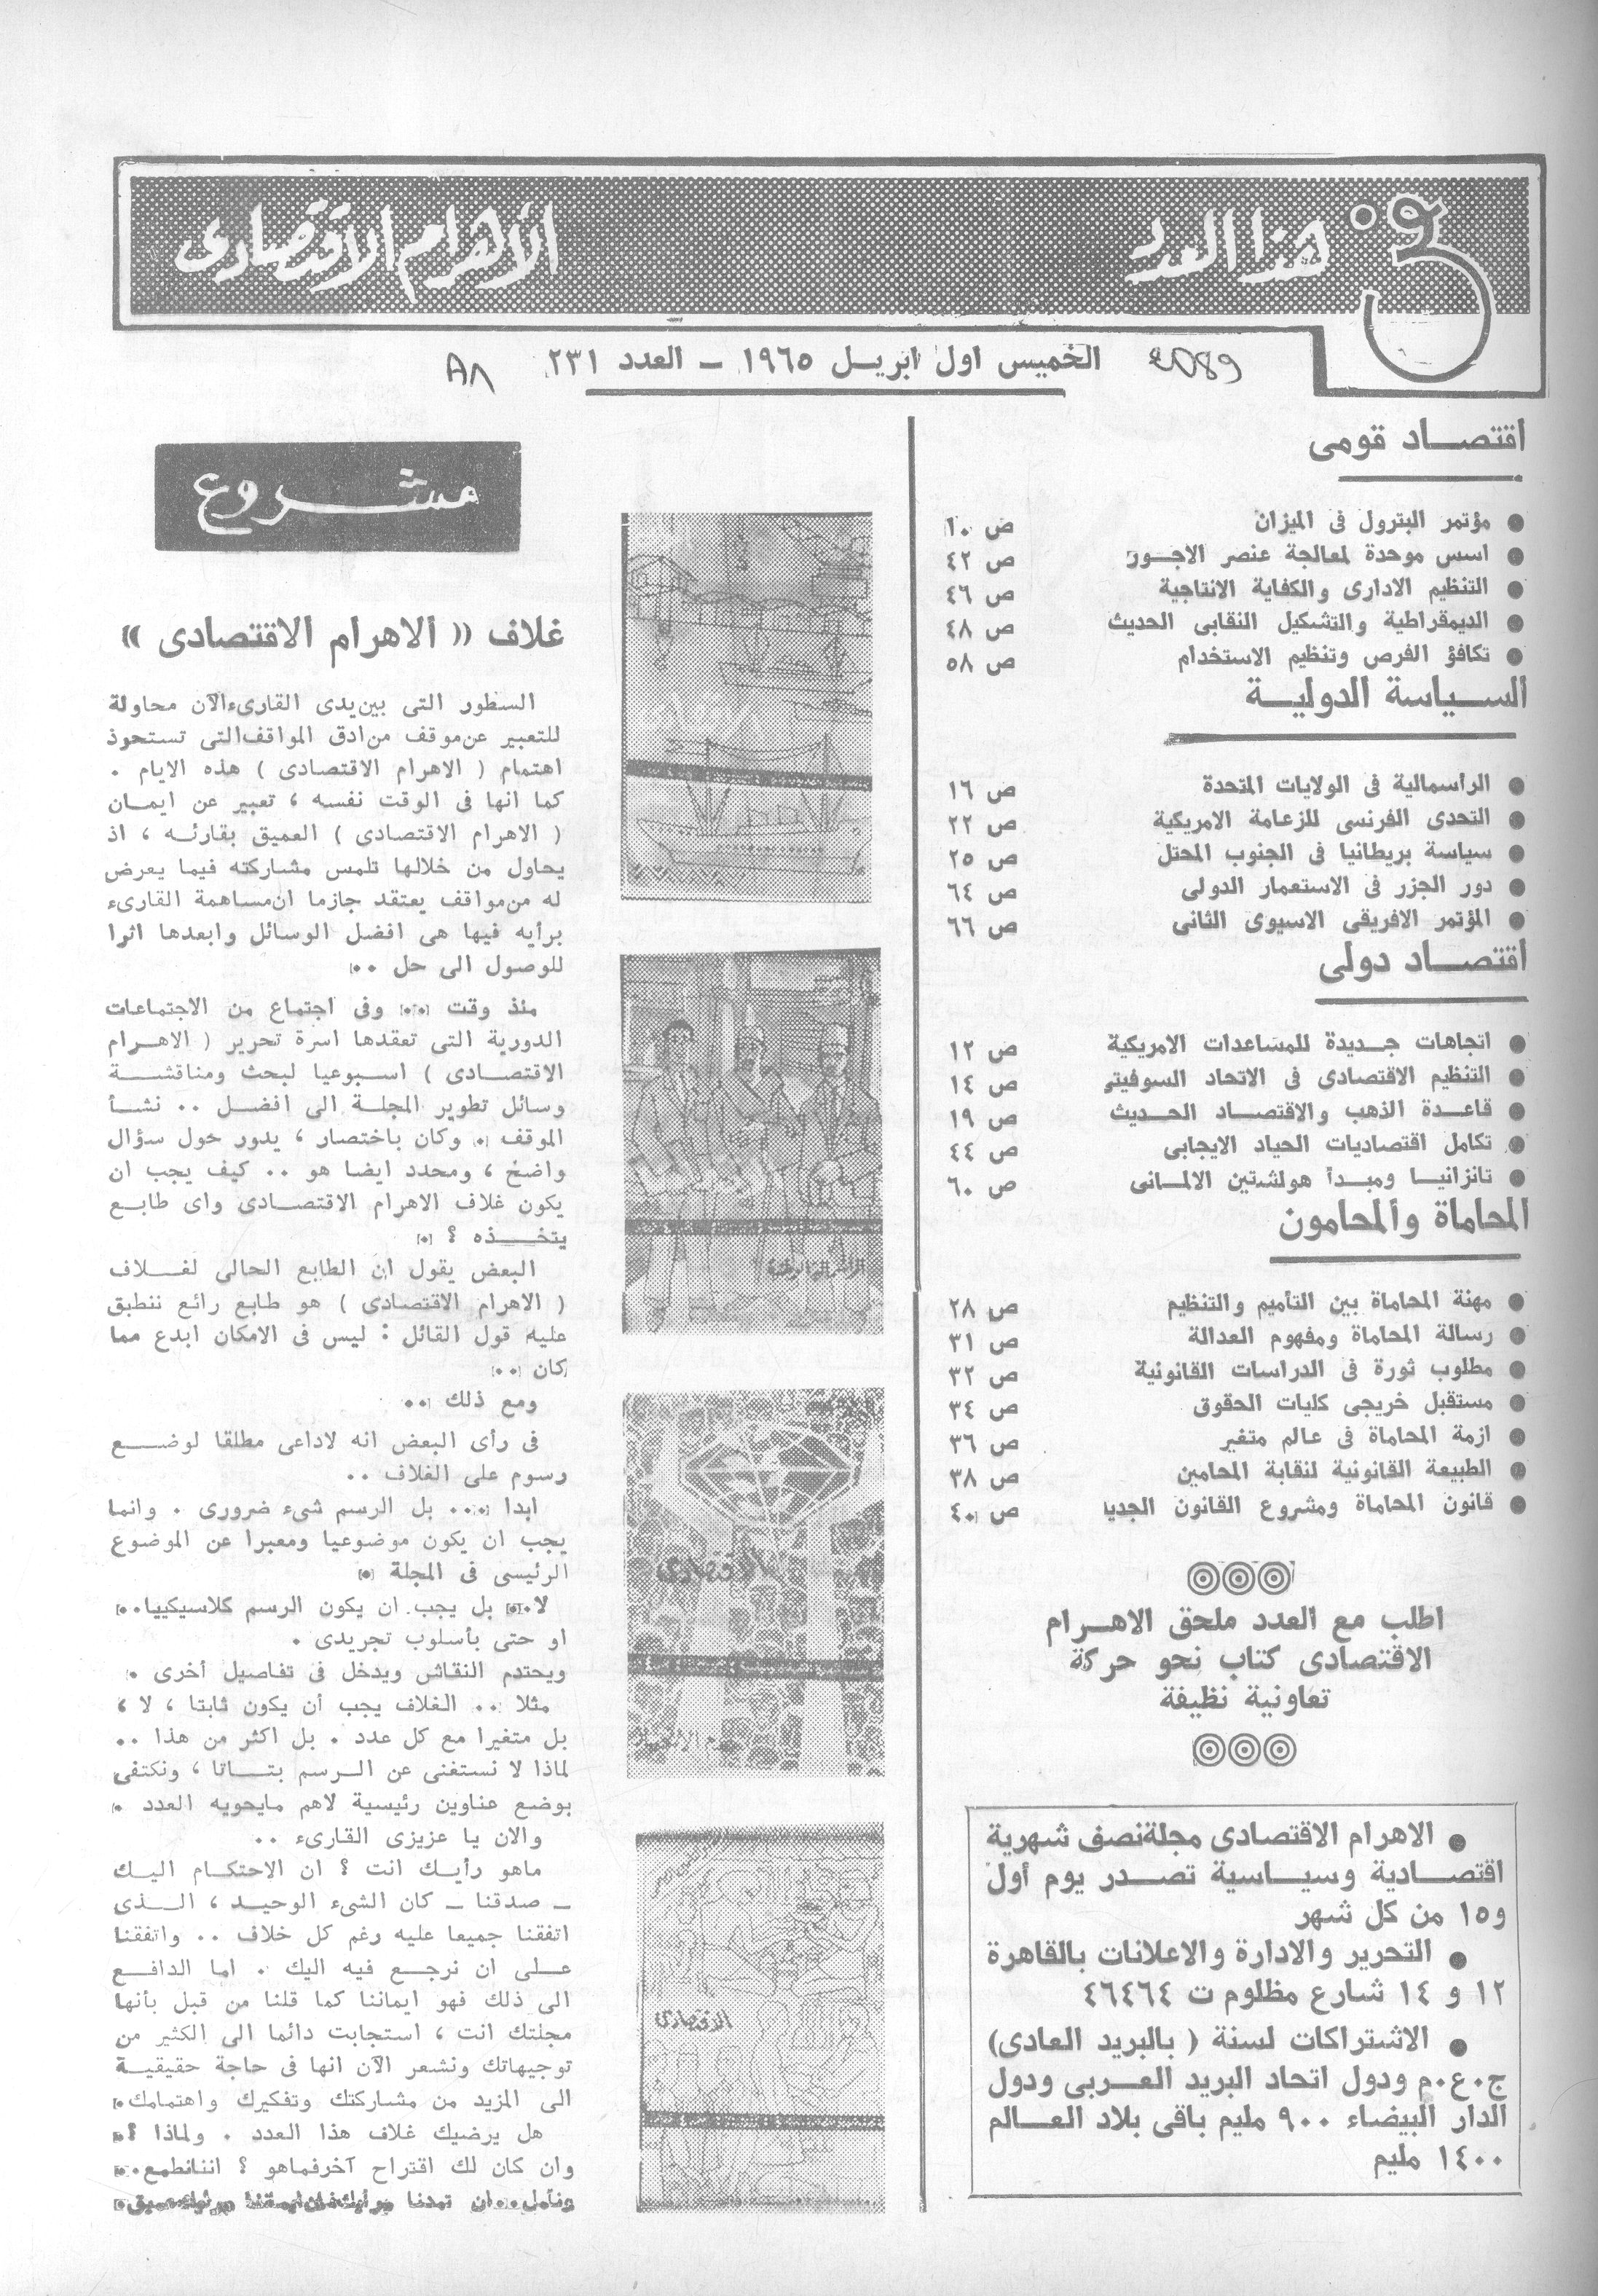 في هذا العدد
الأهرام الاقتصادى
الخميس اول ابريل ١٩٦٥ – العدد ٢٣١
اقتصاد قومى
● مؤتمر البترول فى الميزان ص ١٠
● اسس موحدة لمعالجة عنصر الاجور ص ٤٢
● التنظيم الادارى والكفاية الانتاجية ص ٤٦
● الديمقراطية والتشكيل النقابى الحديث ص ٤٨
● تكافؤ الفرص وتنظيم الاستخدام ص ٥٨
السياسة الدولية
● الرأسمالية فى الولايات المتحدة ص ١٦
● التحدى الفرنسى للزعامة الامريكية ص ٢٢
● سياسة بريطانيا فى الجنوب المحتل ص ٢٥
● دور الجزر فى الاستعمار الدولى ص ٦٤
● المؤتمر الافريقى الاسيوى الثانى ص ٦٦
اقتصاد دولى
● اتجاهات جديدة للمساعدات الامريكية ص ١٢
● التنظيم الاقتصادى فى الاتحاد السوفيتى ص ١٤
● قاعدة الذهب والاقتصاد الحديث ص ١٩
● تكامل اقتصاديات الحياد الايجابى ص ٤٤
● تانزانيا ومبدأ هولشتين الالمانى ص ٦٠
المحاماة والمحامون
● مهنة المحاماة بين التأميم والتنظيم ص ٢٨
● رسالة المحاماة ومفهوم العدالة ص ٣١
● مطلوب ثورة فى الدراسات القانونية ص ٣٢
● مستقبل خريجى كليات الحقوق ص ٣٤
● ازمة المحاماة فى عالم متغير ص ٣٦
● الطبيعة القانونية لنقابة المحامين ص ٣٨
● قانون المحاماة ومشروع القانون الجديد ص ٤٠
اطلب مع العدد ملحق الاهرام
الاقتصادى كتاب نحو حركة
تعاونية نظيفة
● الاهرام الاقتصادى مجلة نصف شهرية
اقتصادية وسياسية تصدر يوم أول
و١٥ من كل شهر
● التحرير والادارة والاعلانات بالقاهرة
١٢ و ١٤ شارع مظلوم ت ٤٦٤٦٤
● الاشتراكات لسنة ( بالبريد العادى)
ج٠ع٠م ودول اتحاد البريد العربى ودول
الدار البيضاء ٩٠٠ مليم باقى بلاد العالم
١٤٠٠ مليم
مشروع
غلاف « الاهرام الاقتصادى »
السطور التى بين يدى القارىء الآن محاولة
للتعبير عن موقف من ادق المواقف التى تستحوذ
اهتمام ( الاهرام الاقتصادى ) هذه الايام .
كما انها فى الوقت نفسه ، تعبير عن ايمان
( الاهرام الاقتصادى ) العميق بقارئه ، اذ
يحاول من خلالها تلمس مشاركته فيما يعرض
له من مواقف يعتقد جازما ان مساهمة القارىء
برأيه فيها هى افضل الوسائل وابعدها اثرا
للوصول الى حل ..
منذ وقت .. وفى اجتماع من الاجتماعات
الدورية التى تعقدها اسرة تحرير ( الاهرام
الاقتصادى ) اسبوعيا لبحث ومناقشة
وسائل تطوير المجلة الى افضل .. نشأ
الموقف . وكان باختصار ، يدور حول سؤال
واضح ، ومحدد ايضا هو .. كيف يجب ان
يكون غلاف الاهرام الاقتصادى واى طابع
يتخذه ؟ .
البعض يقول ان الطابع الحالى لغلاف
( الاهرام الاقتصادى ) هو طابع رائع تنطبق
عليه قول القائل : ليس فى الامكان ابدع مما
كان ..
ومع ذلك ..
فى رأى البعض انه لاداعى مطلقا لوضع
رسوم على الغلاف ..
ابدا ... بل الرسم شىء ضرورى . وانما
يجب ان يكون موضوعيا ومعبرا عن الموضوع
الرئيسى فى المجلة .
لا .. بل يجب ان يكون الرسم كلاسيكييا..
او حتى بأسلوب تجريدى .
ويحتدم النقاش ويدخل فى تفاصيل أخرى .
مثلا .. الغلاف يجب أن يكون ثابتا ، لا ،
بل متغيرا مع كل عدد . بل اكثر من هذا ..
لماذا لا نستغنى عن الرسم بتاتا ، ونكتفى
بوضع عناوين رئيسية لاهم مايحويه العدد .
والان يا عزيزى القارىء ..
ماهو رأيك انت ؟ ان الاحتكام اليك
– صدقنا – كان الشىء الوحيد ، الذى
اتفقنا جميعا عليه رغم كل خلاف .. واتفقنا
على ان نرجع فيه اليك . اما الدافع
الى ذلك فهو ايماننا كما قلنا من قبل بأنها
مجلتك انت ، استجابت دائما الى الكثير من
توجيهاتك ونشعر الآن انها فى حاجة حقيقية
الى المزيد من مشاركتك وتفكيرك واهتمامك.
هل يرضيك غلاف هذا العدد . ولماذا ؟
وان كان لك اقتراح آخر فماهو ؟ اننا نطمع..
ونأمل .. ان تمدنا